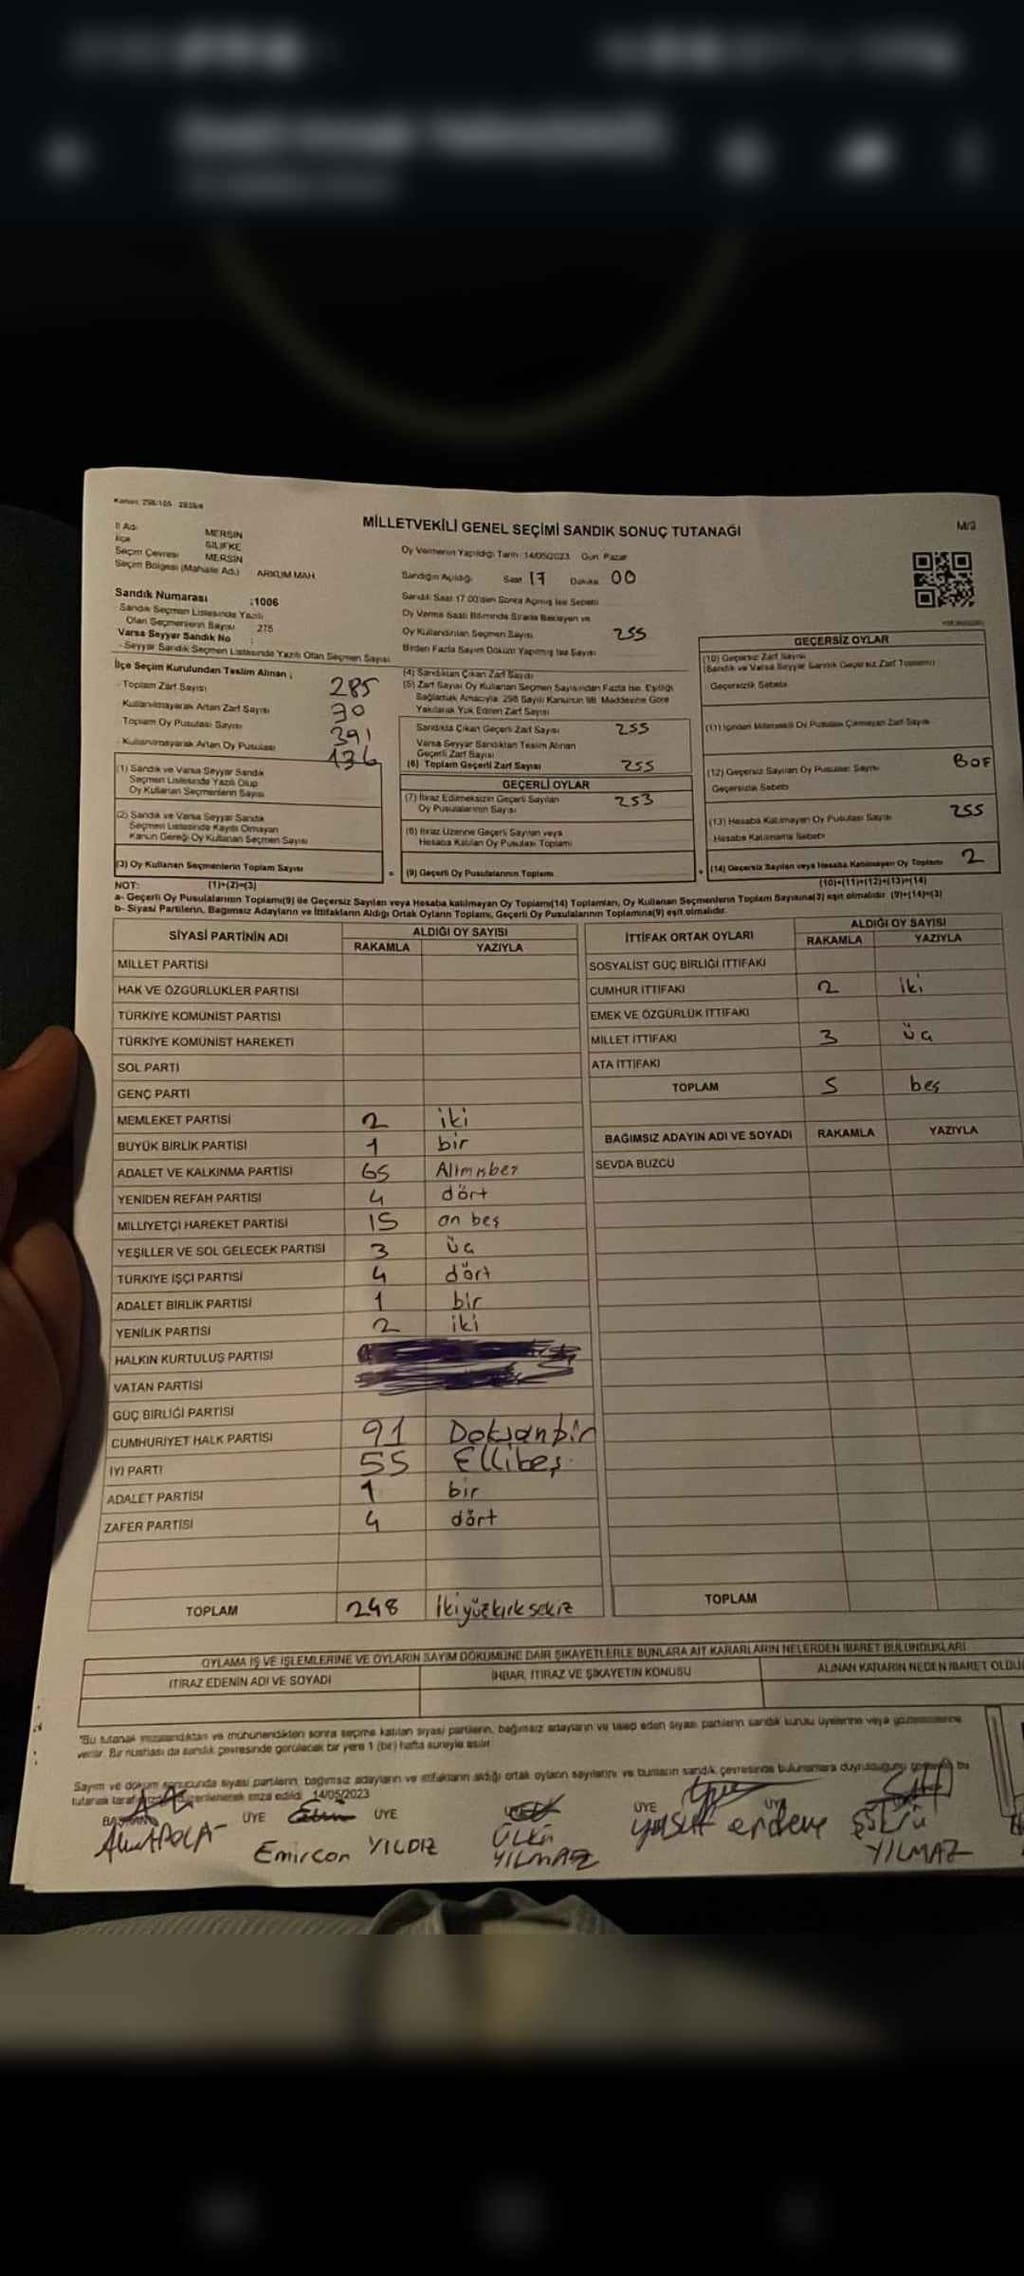 Kanun: 298/105 - 2839/4
MİLLETVEKİLİ GENEL SEÇİMİ SANDIK SONUÇ TUTANAĞI
İl Adı MERSİN
İlçe SİLİFKE
Seçim Çevresi MERSİN
Seçim Bölgesi (Mahalle Adı) ARKUM MAH
Sandık Numarası :1006
Sandık Seçmen Listesinde Yazılı
Olan Seçmenlerin Sayısı 275
Varsa Seyyar Sandık No :
- Seyyar Sandık Seçmen Listesinde Yazılı Olan Seçmen Sayısı
Oy Vermenin Yapıldığı Tarih: 14/05/2023 Gün: Pazar
Sandığın Açıldığı Saat 17 Dakika 00
Sandık Saat 17.00'den Sonra Açılmış İse Sebebi
Oy Verme Saati Bitiminde Sırada Bekleyen ve
Oy Kullandırılan Seçmen Sayısı 255
Birden Fazla Sayım Döküm Yapılmış İse Sayısı
İlçe Seçim Kurulundan Teslim Alınan ;
- Toplam Zarf Sayısı 285
Kullanılmayarak Artan Zarf Sayısı 30
Toplam Oy Pusulası Sayısı 391
- Kullanılmayarak Artan Oy Pusulası 136
(1) Sandık ve Varsa Seyyar Sandık
Seçmen Listesinde Yazılı Olup
Oy Kullanan Seçmenlerin Sayısı
(2) Sandık ve Varsa Seyyar Sandık
Seçmen Listesinde Kayıtlı Olmayan
Kanun Gereği Oy Kullanan Seçmen Sayısı
(3) Oy Kullanan Seçmenlerin Toplam Sayısı
(4) Sandıktan Çıkan Zarf Sayısı
(5) Zarf Sayısı Oy Kullanan Seçmen Sayısından Fazla İse, Eşitliği
Sağlamak Amacıyla, 298 Sayılı Kanunun 98. Maddesine Göre
Yakılarak Yok Edilen Zarf Sayısı
Sandıkta Çıkan Geçerli Zarf Sayısı 255
Varsa Seyyar Sandıktan Teslim Alınan
Geçerli Zarf Sayısı
(6) Toplam Geçerli Zarf Sayısı 255
GEÇERLİ OYLAR
(7) İtiraz Edilmeksizin Geçerli Sayılan
Oy Pusulalarının Sayısı 253
(8) İtiraz Üzerine Geçerli Sayılan veya
Hesaba Katılan Oy Pusulası Toplamı
= (9) Geçerli Oy Pusulalarının Toplamı
GEÇERSİZ OYLAR
(10) Geçersiz Zarf Sayısı
(Sandık ve Varsa Seyyar Sandık Geçersiz Zarf Toplamı)
Geçersizlik Sebebi
(11) İçinden Milletvekili Oy Pusulası Çıkmayan Zarf Sayısı
(12) Geçersiz Sayılan Oy Pusulası Sayısı BOF
Geçersizlik Sebebi
(13) Hesaba Katılmayan Oy Pusulası Sayısı 255
Hesaba Katılmama Sebebi
+ (14) Geçersiz Sayılan veya Hesaba Katılmayan Oy Toplamı 2
NOT: (1)+(2)=(3) (10)+(11)+(12)+(13)=(14)
a- Geçerli Oy Pusulalarının Toplamı(9) ile Geçersiz Sayılan veya Hesaba katılmayan Oy Toplamı(14) Toplamları, Oy Kullanan Seçmenlerin Toplam Sayısına(3) eşit olmalıdır. (9)+(14)=(3)
b- Siyasi Partilerin, Bağımsız Adayların ve İttifakların Aldığı Ortak Oyların Toplamı, Geçerli Oy Pusulalarının Toplamına(9) eşit olmalıdır.
SİYASİ PARTİNİN ADI ALDIĞI OY SAYISI
RAKAMLA YAZIYLA
MİLLET PARTİSİ
HAK VE ÖZGÜRLÜKLER PARTİSİ
TÜRKİYE KOMÜNİST PARTİSİ
TÜRKİYE KOMÜNİST HAREKETİ
SOL PARTİ
GENÇ PARTİ
MEMLEKET PARTİSİ 2 iki
BÜYÜK BİRLİK PARTİSİ 1 bir
ADALET VE KALKINMA PARTİSİ 65
YENİDEN REFAH PARTİSİ 4 dört
MİLLİYETÇİ HAREKET PARTİSİ 15 on beş
YEŞİLLER VE SOL GELECEK PARTİSİ 3 üç
TÜRKİYE İŞÇİ PARTİSİ 4 dört
ADALET BİRLİK PARTİSİ 1 bir
YENİLİK PARTİSİ 2 iki
HALKIN KURTULUŞ PARTİSİ
VATAN PARTİSİ
GÜÇ BİRLİĞİ PARTİSİ
CUMHURİYET HALK PARTİSİ 91 Doksanbir
İYİ PARTİ 55 Ellibeş
ADALET PARTİSİ 1 bir
ZAFER PARTİSİ 4 dört
TOPLAM 248 ikiyüzkırksekiz
İTTİFAK ORTAK OYLARI ALDIĞI OY SAYISI
RAKAMLA YAZIYLA
SOSYALİST GÜÇ BİRLİĞİ İTTİFAKI
CUMHUR İTTİFAKI 2 iki
EMEK VE ÖZGÜRLÜK İTTİFAKI
MİLLET İTTİFAKI 3 üç
ATA İTTİFAKI
TOPLAM 5 beş
BAĞIMSIZ ADAYIN ADI VE SOYADI RAKAMLA YAZIYLA
SEVDA BUZCU
TOPLAM
OYLAMA İŞ VE İŞLEMLERİNE VE OYLARIN SAYIM DÖKÜMÜNE DAİR ŞİKAYETLERLE BUNLARA AİT KARARLARIN NELERDEN İBARET BULUNDUKLARI
İTİRAZ EDENİN ADI VE SOYADI İHBAR, İTİRAZ VE ŞİKAYETİN KONUSU ALINAN KARARIN NEDEN İBARET OLDU
"Bu tutanak imzalandıktan ve mühürlendikten sonra seçime katılan siyasi partilerin, bağımsız adayların ve talep eden siyasi partilerin sandık kurulu üyelerine veya gözlemcilerine
verilir. Bir nüshası da sandık çevresinde görülecek bir yere 1 (bir) hafta süreyle asılır.
Sayım ve döküm sonucunda siyasi partilerin, bağımsız adayların ve ittifakların aldığı ortak oyların sayılarını ve bunların sandık çevresinde bulunanlara duyurulduğunu
tutanak 14/05/2023
BAŞKAN ÜYE ÜYE ÜYE ÜYE
Emircan YILDIZ ÜLKÜ YILMAZ Yusuf erdene ŞÜKRÜ YILMAZ